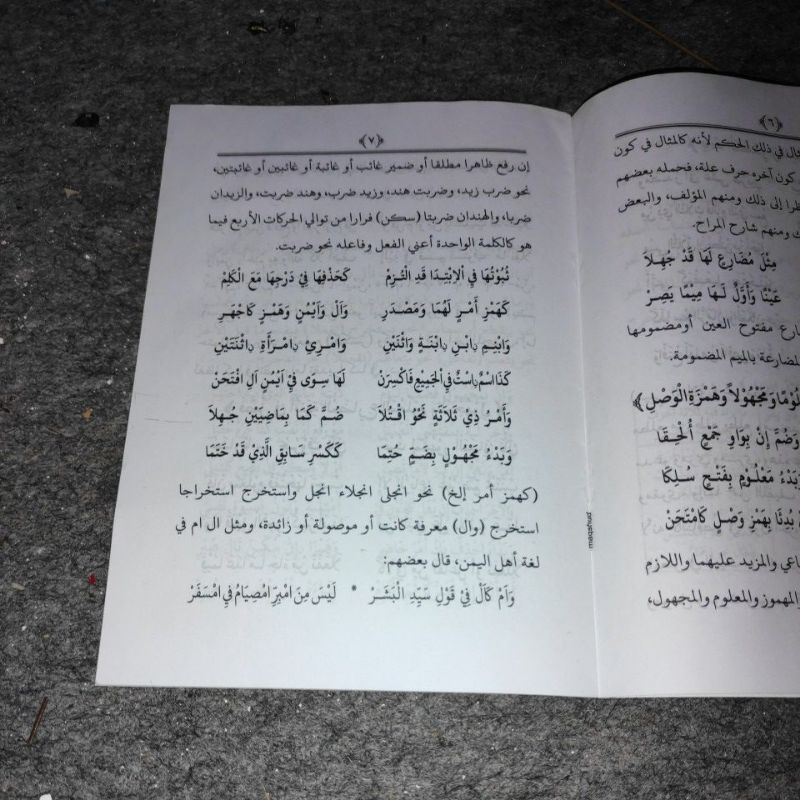 ﴿٦﴾
في ذلك الحكم لأنه كالمثال في كون
كون آخره حرف علة، فحمله بعضهم
إلى ذلك ومنهم المؤلف، والبعض
ومنهم شارح المراح.
مِثْلُ مُضَارِعٍ لَهَا قَدْ جُهِلَا
عَيْنًا وَأَوَّلٌ لَهَا مِيْمًا يَصِرْ
مفتوح العين أومضمومها
للمضارعة بالميم المضمومة.
وَمَجْهُوْلاً وَهَمْزَةِ الْوَصْلِ﴾
وَضُمَّ إِنْ بِوَاوِ جَمْعٍ أُلْحِقَا
مَعْلُوْمٍ بِفَتْحٍ سُلِكَا
بُدِئَا بِهَمْزِ وَصْلٍ كَامْتَحَنْ
والمزيد عليهما واللازم
والمهموز والمعلوم والمجهول،
﴿٧﴾
إن رفع ظاهرا مطلقا أو ضمير غائب أو غائبة أو غائبين أو غائبتين،
نحو ضرب زيد، وضربت هند، وزيد ضرب، وهند ضربت، والزيدان
ضربا، والهندان ضربتا (سكن) فرارا من توالي الحركات الأربع فيما
هو كالكلمة الواحدة أعني الفعل وفاعله نحو ضربت.
ثُبُوْتُهَا فِي الْاِبْتِدَا قَدِ الْتُزِمْ كَحَذْفِهَا فِيْ دَرْجِهَا مَعَ الْكَلِمْ
كَهَمْزِ أَمْرٍ لَهُمَا وَمَصْدَرِ وَاَلْ وَاَيْمُنٍ وَهَمْزٍ كَاجْهَرِ
وَابْنِمِ بِابْنٍ بِابْنَةٍ وَاثْنَيْنِ وَامْرِئٍ بِامْرَأَةٍ بِاثْنَتَيْنِ
كَذَا اسْمٌ بِاسْتٌ فِي الْجَمِيْعِ فَاكْسِرَنْ لَهَا سِوَى فِيْ اَيْمُنٍ اَلْ افْتَحَنْ
وَأَمْرُ ذِيْ ثَلَاثَةٍ نَحْوُ اقْتُلَا ضُمَّ كَمَا بِمَاضِيَيْنِ جُهِلَا
وَبَدْءُ مَجْهُوْلٍ بِضَمٍّ حُتِمَا كَكَسْرِ سَابِقِ الَّذِيْ قَدْ خُتِمَا
(كهمز أمر إلخ) نحو انجلى انجلاء انجل واستخرج استخراجا
استخرج (وال) معرفة كانت أو موصولة أو زائدة، ومثل ال ام في
لغة أهل اليمن، قال بعضهم:
وَاَمْ كَاَلْ فِيْ قَوْلِ سَيِّدِ الْبَشَرْ * لَيْسَ مِنَ امْبِرِّ امْصِيَامُ فِي امْسَفَرْ
maqshud